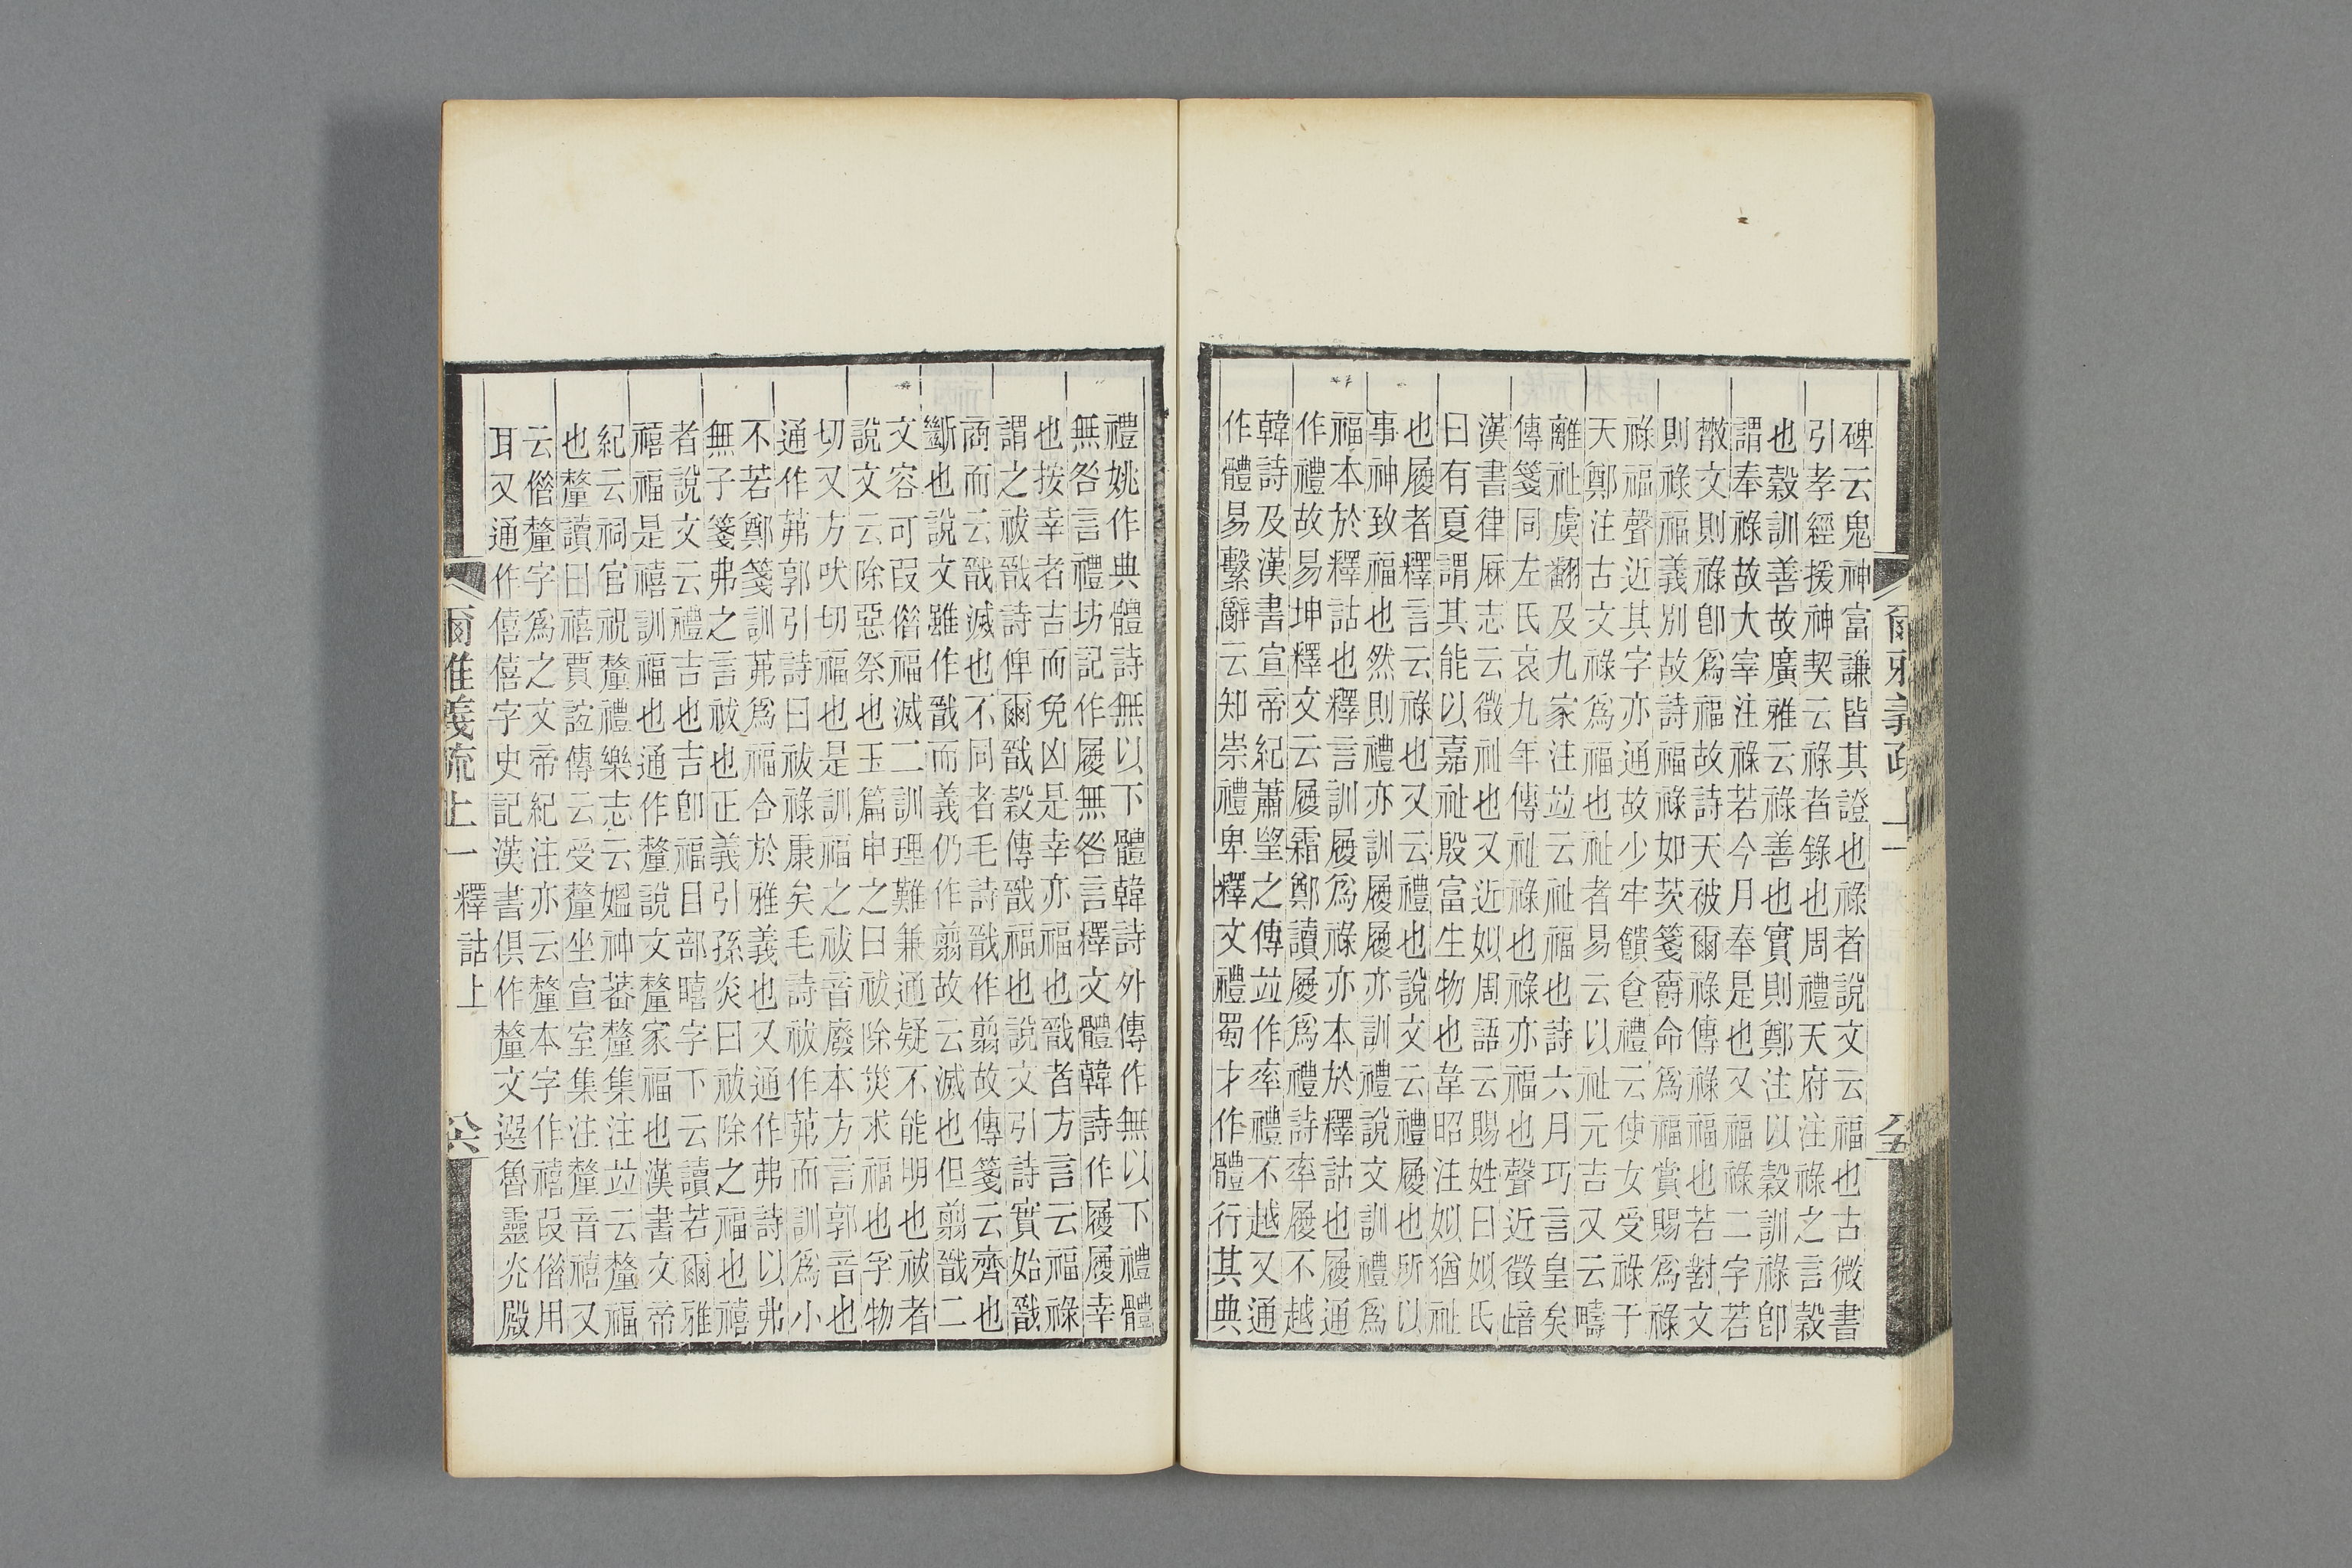 碑云鬼神富謙皆其證也祿者說文云福也古微書
引孝經援神契云祿者錄也周禮天府注祿之言穀
也穀訓善故廣雅云祿善也實則鄭注以穀訓祿卽
謂奉祿故大宰注祿若今月奉是也又福祿二字若
散文則祿卽爲福故詩天被爾祿傳祿福也若對文
則祿福義別故詩福祿如茨箋爵命爲福賞賜爲祿
祿福聲近其字亦通故少牢饋食禮云使女受祿于
天鄭注古文祿爲福也祉者易云以祉元吉又云疇
離祉虞翻及九家注竝云祉福也詩六月巧言皇矣
傳箋同左氏哀九年傳祉祿也祿亦福也聲近徵故
漢書律厤志云徵祉也又近姒周語云賜姓曰姒氏
曰有夏謂其能以嘉祉殷富生物也韋昭注姒猶祉
也履者釋言云祿也又云禮也說文云禮履也所以
事神致福也然則禮亦訓履履亦訓禮說文訓禮爲
福本於釋詁也釋言訓履爲祿亦本於釋詁也履通
作禮故易坤釋文云履霜鄭讀履爲禮詩率履不越
韓詩及漢書宣帝紀蕭望之傳竝作率禮不越又通
作體易繫辭云知崇禮卑釋文禮蜀才作體行其典
禮姚作典體詩無以下體韓詩外傳作無以下禮體
無咎言禮坊記作履無咎言釋文體韓詩作履履幸
也按幸者吉而免凶是幸亦福也戩者方言云福祿
謂之祓戩詩俾爾戩穀傳戩福也說文引詩實始戩
商而云戩滅也不同者毛詩戩作翦故傳箋云齊也
斷也說文雖作戩而義仍作翦故云滅也但翦戩二
文容可叚偺福滅二訓理難兼通疑不能明也祓者
說文云除惡祭也玉篇申之曰祓除災求福也孚物
切又方吠切福也是訓福之祓音廢本方言郭音也
通作茀郭引詩曰祓祿康矣毛詩祓作茀而訓爲小
不若鄭箋訓茀爲福合於雅義也又通作弗詩以弗
無子箋弗之言祓也正義引孫炎曰祓除之福也禧
者說文云禮吉也吉卽福目部瞦字下云讀若爾雅
禧福是禧訓福也通作釐說文釐家福也漢書文帝
紀云祠官祝釐禮樂志云媼神蕃釐集注竝云釐福
也釐讀曰禧賈誼傳云受釐坐宣室集注釐音禧又
云偺釐字爲之文帝紀注亦云釐本字作禧叚偺用
耳又通作僖僖字史記漢書俱作釐文選魯靈光殿
爾雅義疏 上一 釋詁上